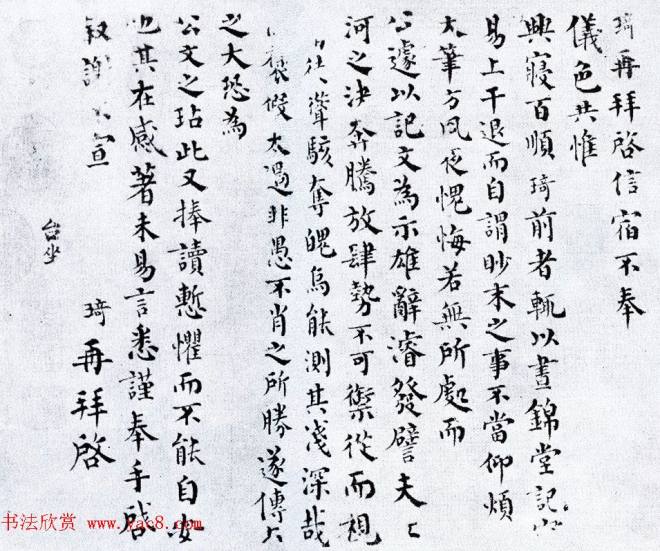 琦再拜啓信宿不奉
儀色共惟
興寢百順琦前者輒以晝錦堂記
易上干退而自謂眇末之事不當仰煩
大筆方夙夜愧悔若無所處而
公遽以記文為示雄辭濬發譬夫
河之決奔騰放肆勢不可禦從而視
聳駭奪魄烏能測其淺深哉
褒假太過非愚不肖之所勝遂傳
之大恐為
公文之玷此又捧讀慙懼而不能自安
也其在感著未易言悉謹奉手啓
敘謝不宣
琦再拜啓
台坐
书法欣赏